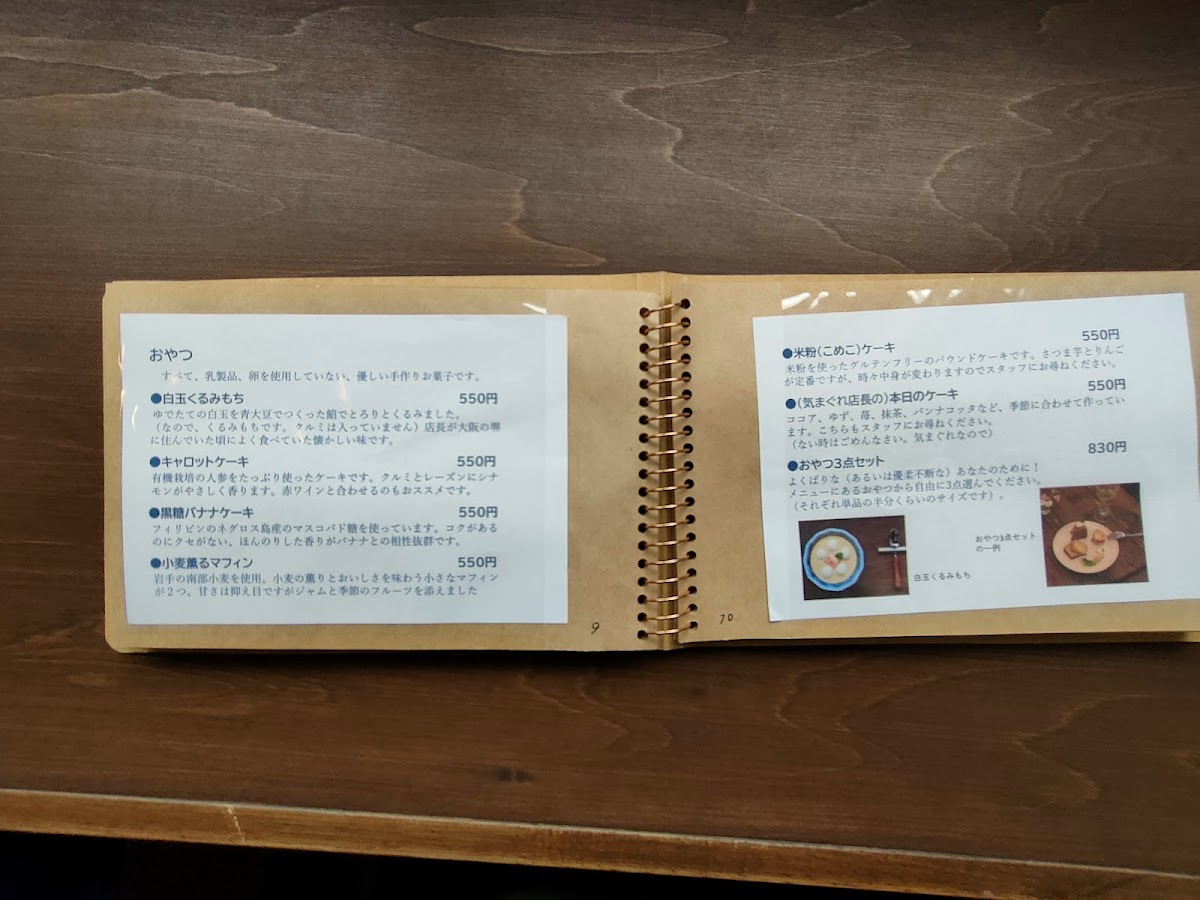 おやつ
すべて、乳製品、卵を使用していない、優しい手作りお菓子です。
●白玉くるみもち 550円
ゆでたての白玉を青大豆でつくった餡でとろりとくるみました。
(なので、くるみもちです。クルミは入っていません)店長が大阪の堺
に住んでいた頃によく食べていた懐かしい味です。
●キャロットケーキ 550円
有機栽培の人参をたっぷり使ったケーキです。クルミとレーズンにシナ
モンがやさしく香ります。赤ワインと合わせるのもおススメです。
●黒糖バナナケーキ 550円
フィリピンのネグロス島産のマスコバド糖を使っています。コクがある
のにクセがない、ほんのりした香りがバナナとの相性抜群です。
●小麦薫るマフィン 550円
岩手の南部小麦を使用。小麦の薫りとおいしさを味わう小さなマフィン
が2つ。甘さは抑え目ですがジャムと季節のフルーツを添えました
9
●米粉(こめこ)ケーキ 550円
米粉を使ったグルテンフリーのパウンドケーキです。さつま芋とりんご
が定番ですが、時々中身が変わりますのでスタッフにお尋ねください。
●(気まぐれ店長の)本日のケーキ 550円
ココア、ゆず、苺、抹茶、パンナコッタなど、季節に合わせて作ってい
ます。こちらもスタッフにお尋ねください。
(ない時はごめんなさい。気まぐれなので)
●おやつ3点セット 830円
よくばりな(あるいは優柔不断な)あなたのために!
メニューにあるおやつから自由に3点選んでください。
(それぞれ単品の半分くらいのサイズです)。
白玉くるみもち
おやつ3点セット
の一例
10